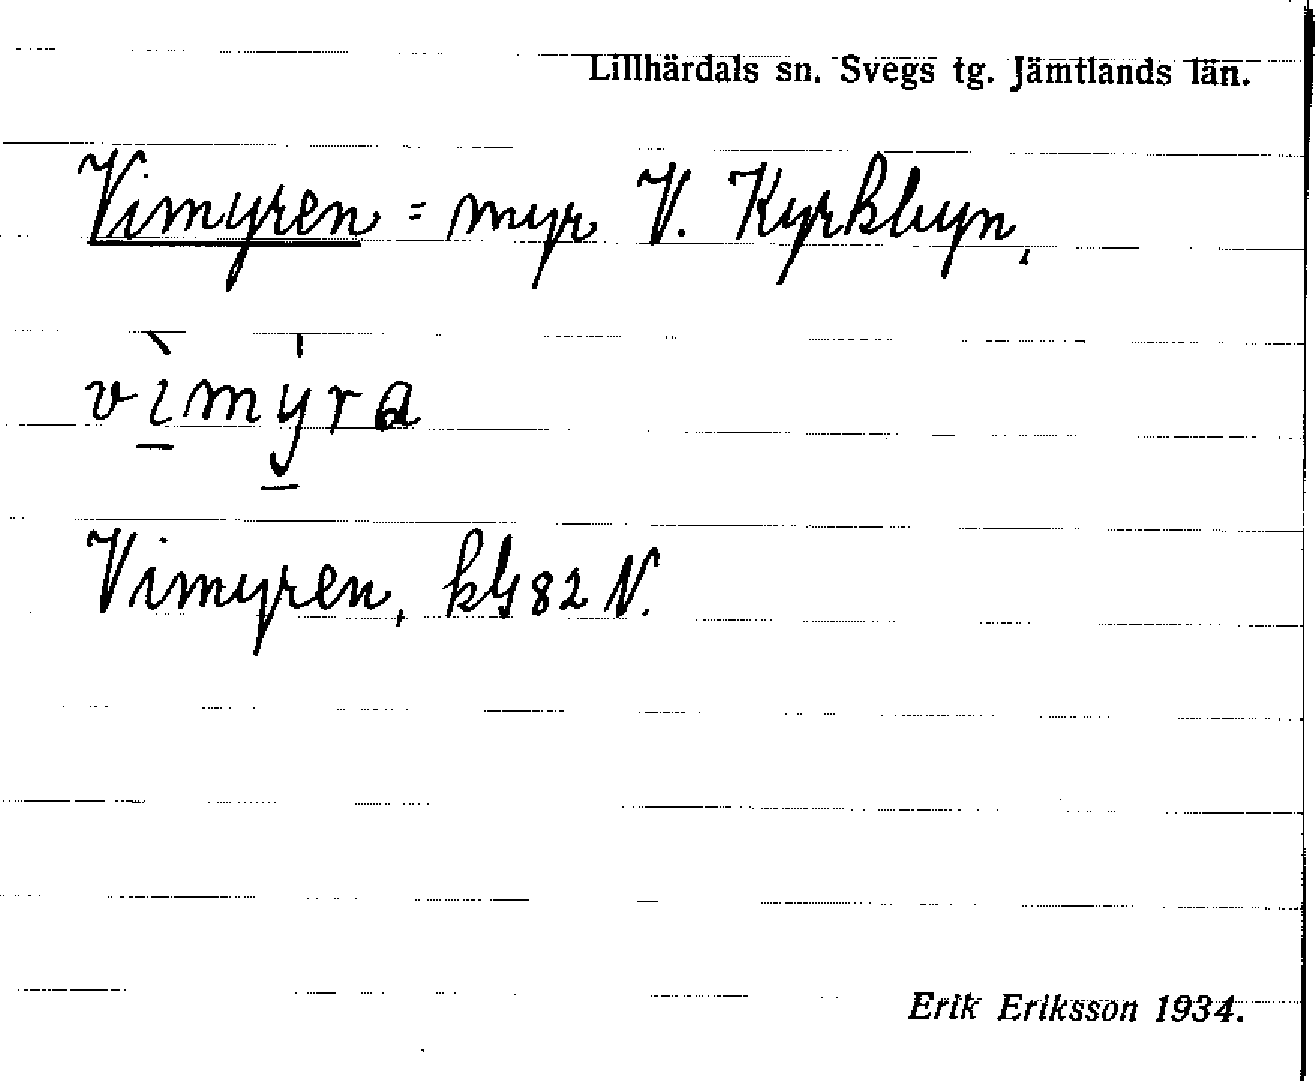 Lillhärdals sn. Svegs tg. Jämtlands län.
Vimyren = myr V. Kyrkbyn,
vìmýra
Vimyren, kG82 N.
Erik Eriksson 1934.